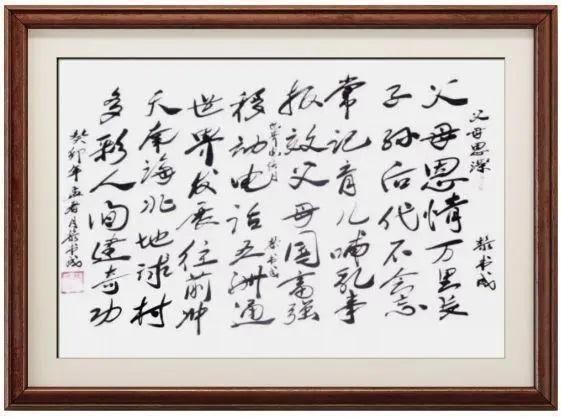 父母恩深
书成
父母恩情万里长
子孙后代不会忘
常记育儿哺乳事
报效父母国富强
世界
书成
移动电话五洲通
世界发展往前冲
天南海北地球村
多彩人间建奇功
癸卯年孟春月书成